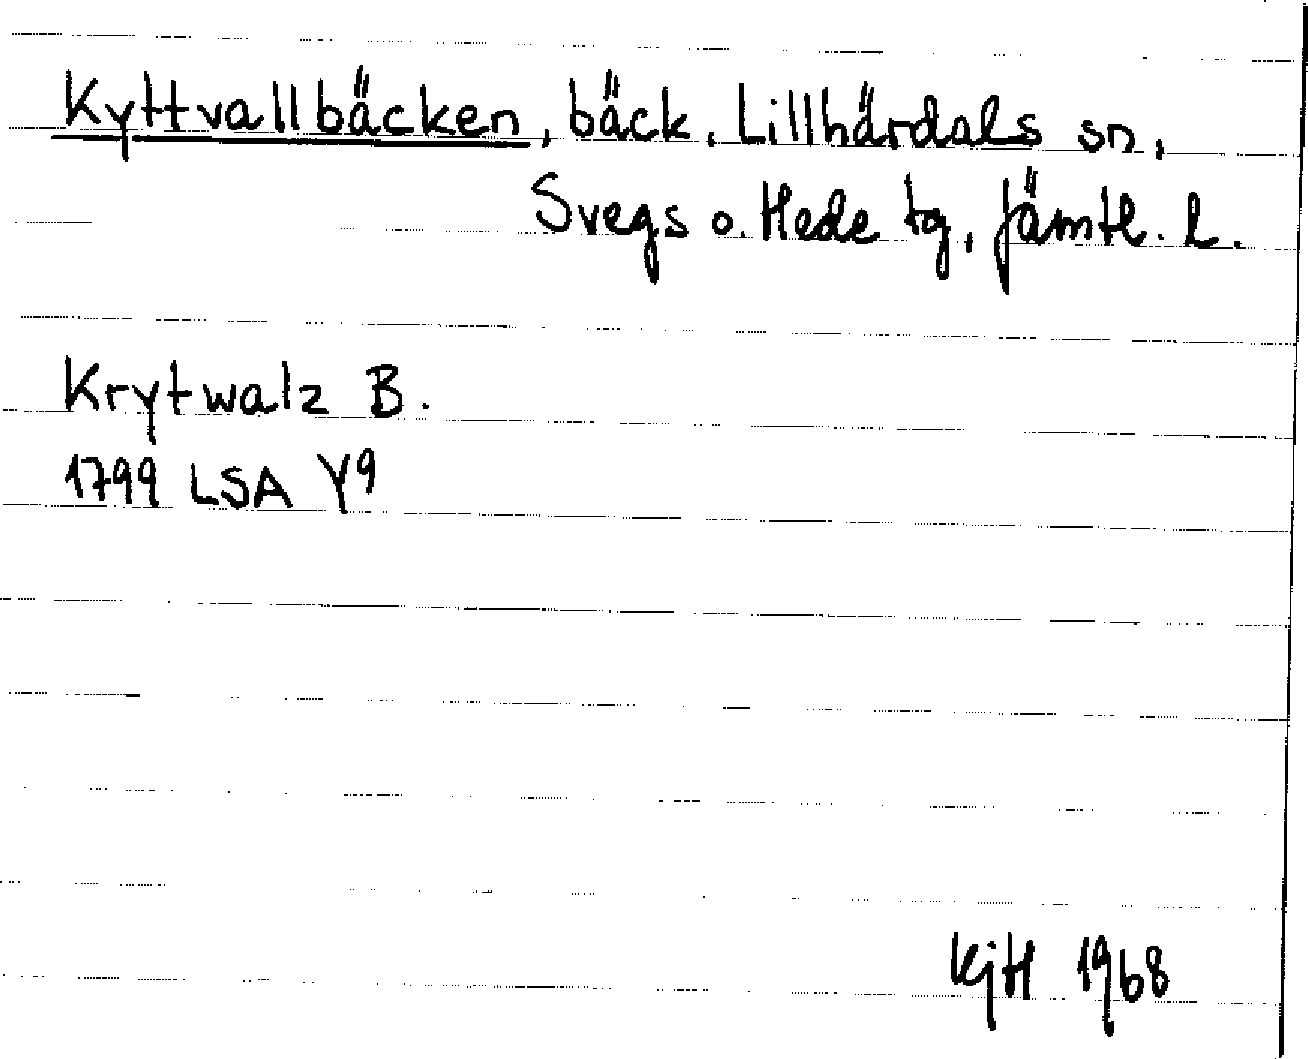 Kyttvallbäcken, bäck, Lillhärdals sn,
Svegs o. Hede tg, Jämtl. l.
Krytwalz B.
1799 LSA Y9
KjH 1968